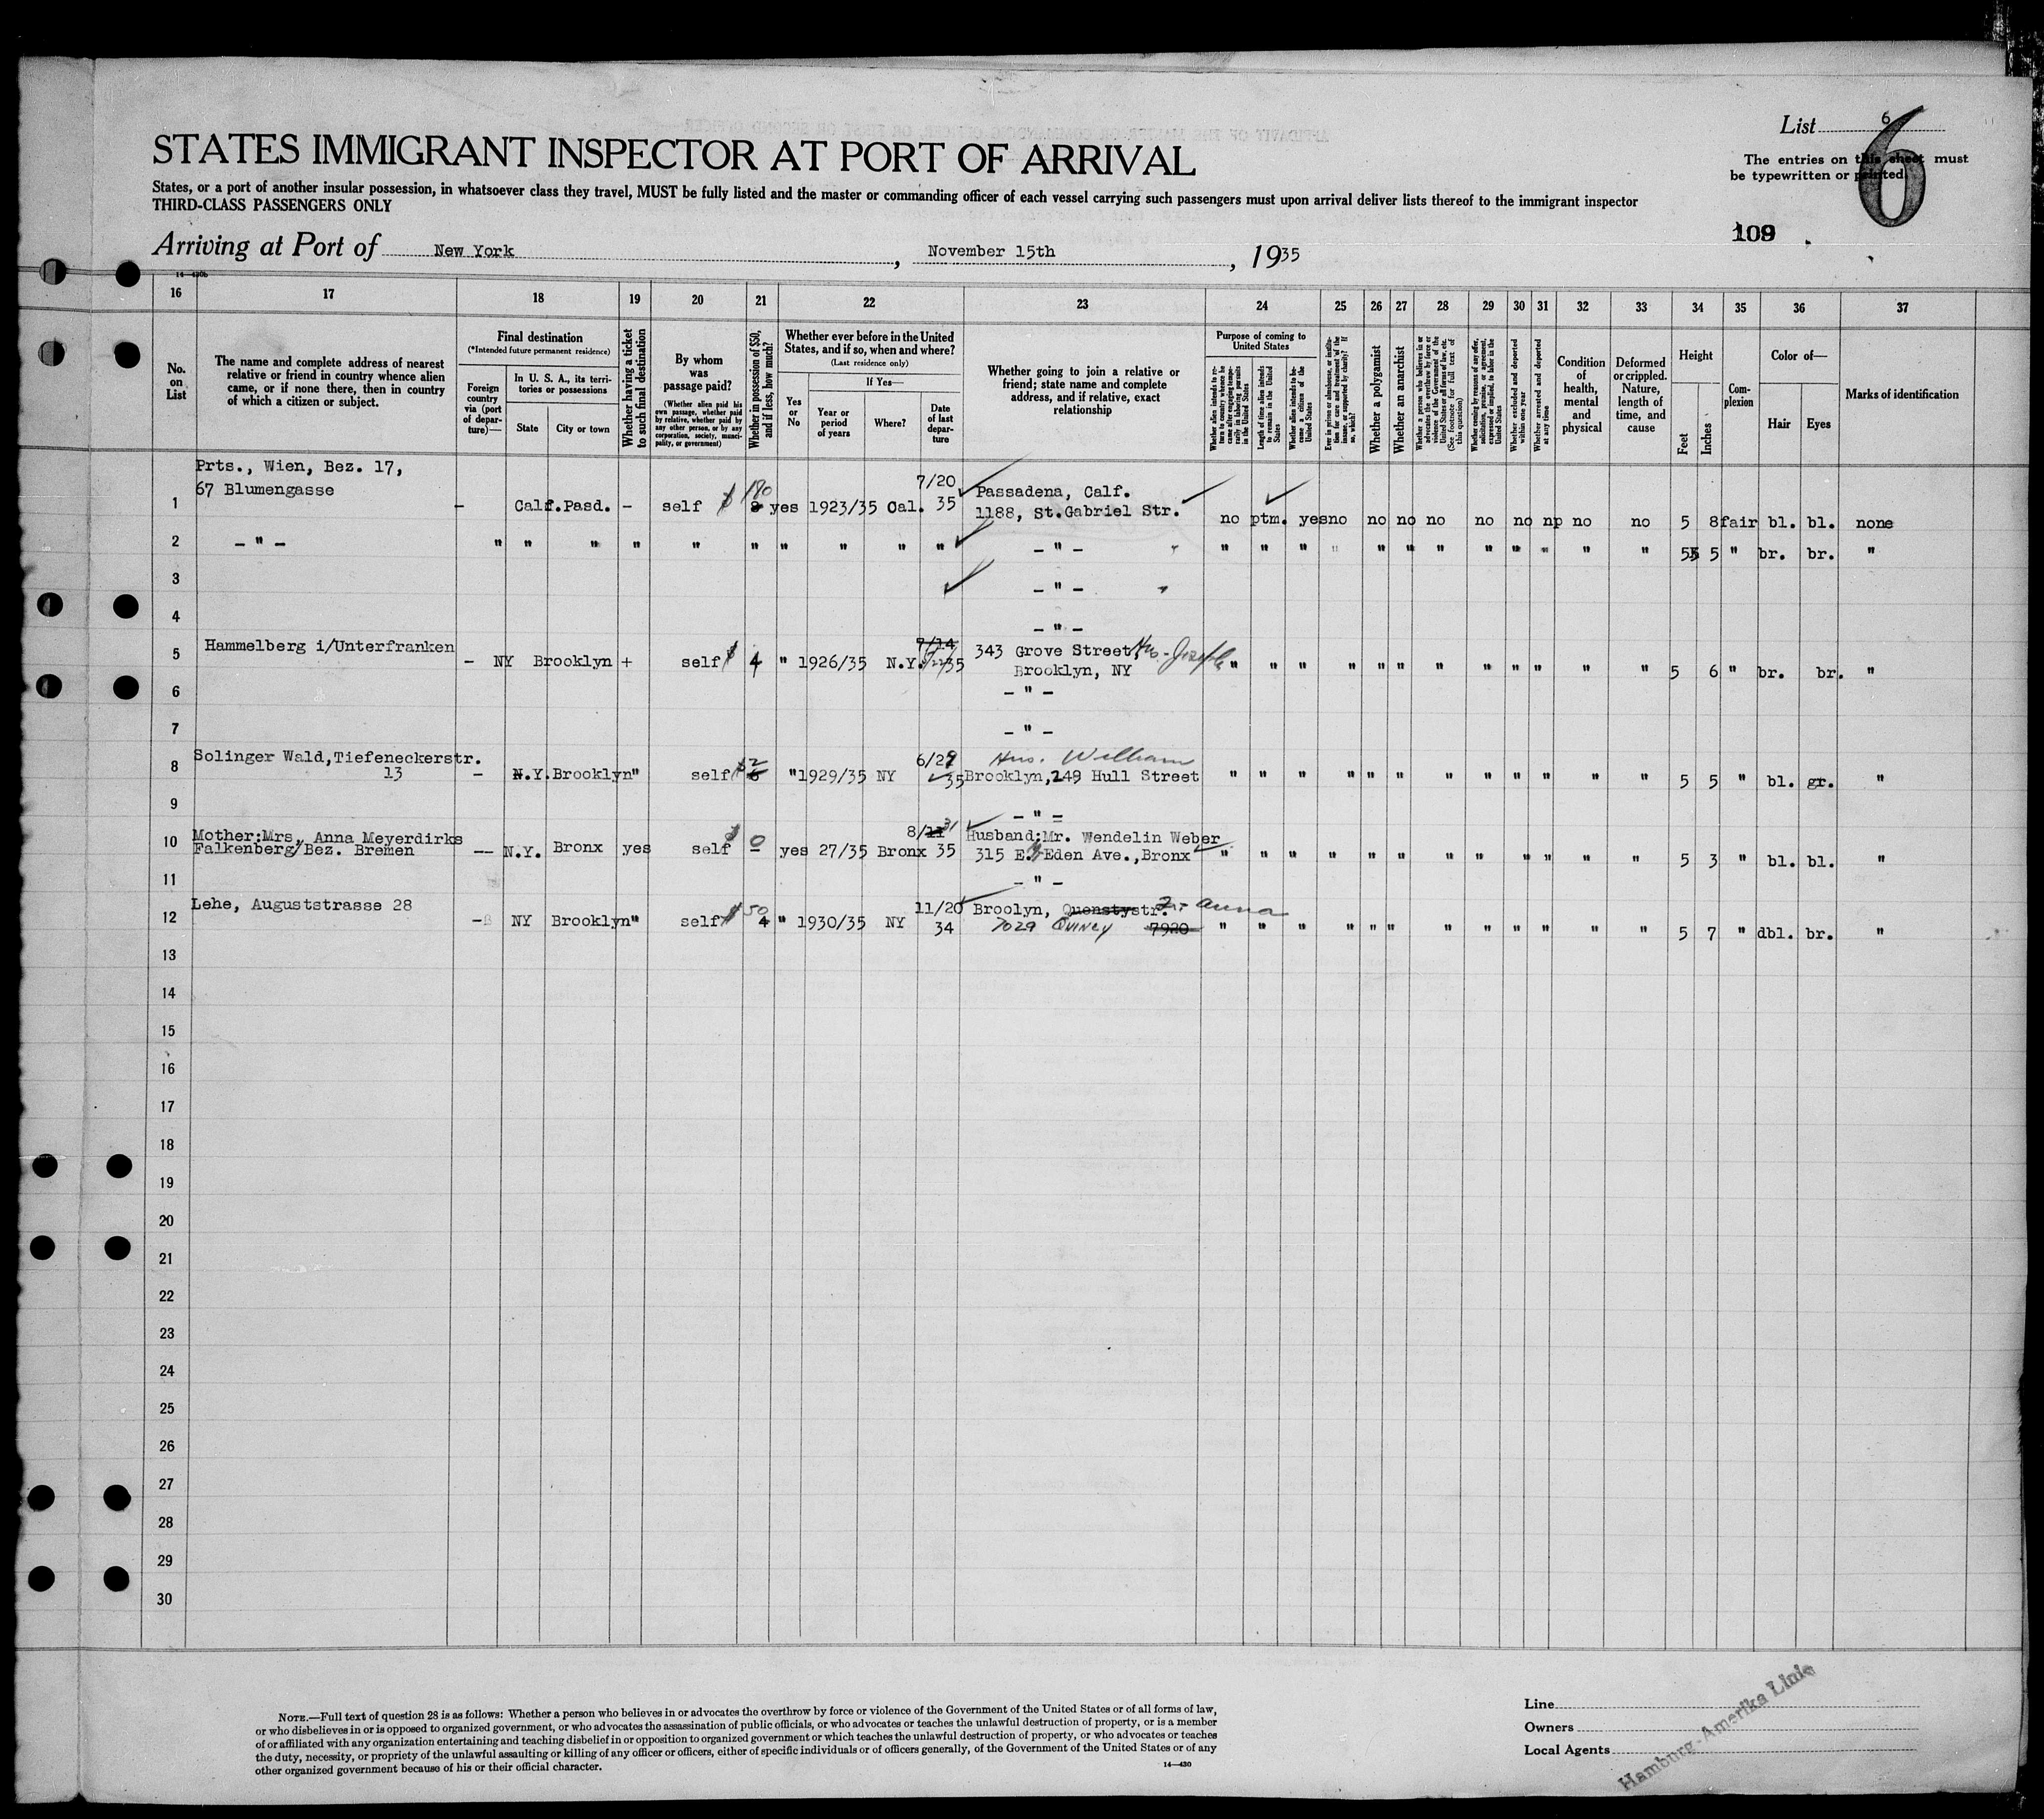 List 6
6
STATES IMMIGRANT INSPECTOR AT PORT OF ARRIVAL
The entries on this sheet must
be typewritten or printed.
States, or a port of another insular possession, in whatsoever class they travel, MUST be fully listed and the master or commanding officer of each vessel carrying such passengers must upon arrival deliver lists thereof to the immigrant inspector
THIRD-CLASS PASSENGERS ONLY
109
Arriving at Port of New York, November 15th, 1935
14—430b
16 17 18 19 20 21 22 23 24 25 26 27 28 29 30 31 32 33 34 35 36 37
No. on List
The name and complete address of nearest relative or friend in country whence alien came, or if none there, then in country of which a citizen or subject.
Final destination
(*Intended future permanent residence)
Foreign country via (port of departure)—
In U. S. A., its territories or possessions
State
City or town
Whether having a ticket to such final destination
By whom was passage paid?
(Whether alien paid his own passage, whether paid by relative, whether paid by any other person, or by any corporation, society, municipality, or government)
Whether in possession of $50, and if less, how much?
Whether ever before in the United States, and if so, when and where?
(Last residence only)
Yes or No
If Yes—
Year or period of years
Where?
Date of last departure
Whether going to join a relative or friend; state name and complete address, and if relative, exact relationship
Purpose of coming to United States
Whether alien intends to return to country whence he came after engaging temporarily in laboring pursuits in the United States
Length of time alien intends to remain in the United States
Whether alien intends to become a citizen of the United States
Ever in prison or almshouse, or institution for care and treatment of the insane, or supported by charity? If so, which?
Whether a polygamist
Whether an anarchist
Whether a person who believes in or advocates the overthrow by force or violence of the Government of the United States or all forms of law, etc. (See footnote for full text of this question)
Whether coming by reasons of any offer, solicitation, promise, or agreement, expressed or implied, to labor in the United States
Whether excluded and deported within one year
Whether arrested and deported at any time
Condition of health, mental and physical
Deformed or crippled. Nature, length of time, and cause
Height
Feet
Inches
Complexion
Color of—
Hair
Eyes
Marks of identification
Prts., Wien, Bez. 17,
67 Blumengasse
1 - Calf. Pasd. - self $ 180 yes 1923/35 Cal. 7/20 35 Passadena, Calf.
1188, St.Gabriel Str. no ptm. yes no no no no no no np no no 5 8 fair bl. bl. none
2 - " - " " " " " " " " " " - " - " " " " " " " " " " " " 5 5 " br. br. "
3 - " -
4 - " -
5 Hammelberg i/Unterfranken - NY Brooklyn + self $ 4 " 1926/35 N.Y. 7/14 35 343 Grove Street, Hus - Joseph
Brooklyn, NY " " " " " " " " " " " " 5 6 " br. br. "
6 - " -
7 - " -
8 Solinger Wald,Tiefeneckerstr.
13 - N.Y. Brooklyn " self $ " 1929/35 NY 6/27 35 Hus. William
Brooklyn,249 Hull Street " " " " " " " " " " " " 5 5 " bl. gr. "
9 - " =
10 Mother:Mrs. Anna Meyerdirks
Falkenberg/Bez. Bremen -- N.Y. Bronx yes self $ 0 yes 27/35 Bronx 8/31 35 Husband:Mr. Wendelin Weber
315 E. Eden Ave.,Bronx " " " " " " " " " " " " 5 3 " bl. bl. "
11 - " -
12 Lehe, Auguststrasse 28 - NY Brooklyn " self $ 50 4 " 1930/35 NY 11/20 34 Broolyn, Quenstystr. Anna
7029 QUINCY 7920 " " " " " " " " " " " " 5 7 " dbl. br. "
13
14
15
16
17
18
19
20
21
22
23
24
25
26
27
28
29
30
NOTE.—Full text of question 28 is as follows: Whether a person who believes in or advocates the overthrow by force or violence of the Government of the United States or of all forms of law,
or who disbelieves in or is opposed to organized government, or who advocates the assassination of public officials, or who advocates or teaches the unlawful destruction of property, or is a member
of or affiliated with any organization entertaining and teaching disbelief in or opposition to organized government or which teaches the unlawful destruction of property, or who advocates or teaches
the duty, necessity, or propriety of the unlawful assaulting or killing of any officer or officers, either of specific individuals or of officers generally, of the Government of the United States or of any
other organized government because of his or their official character.
14—430
Line
Owners
Local Agents
Hamburg-Amerika Linie